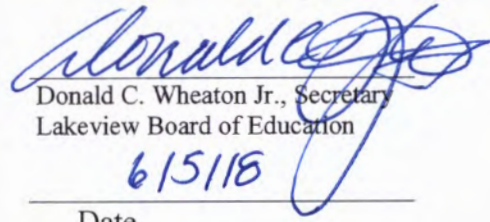 Donald C. Wheaton Jr., Secretary
Lakeview Board of Education
6/5/18
Date